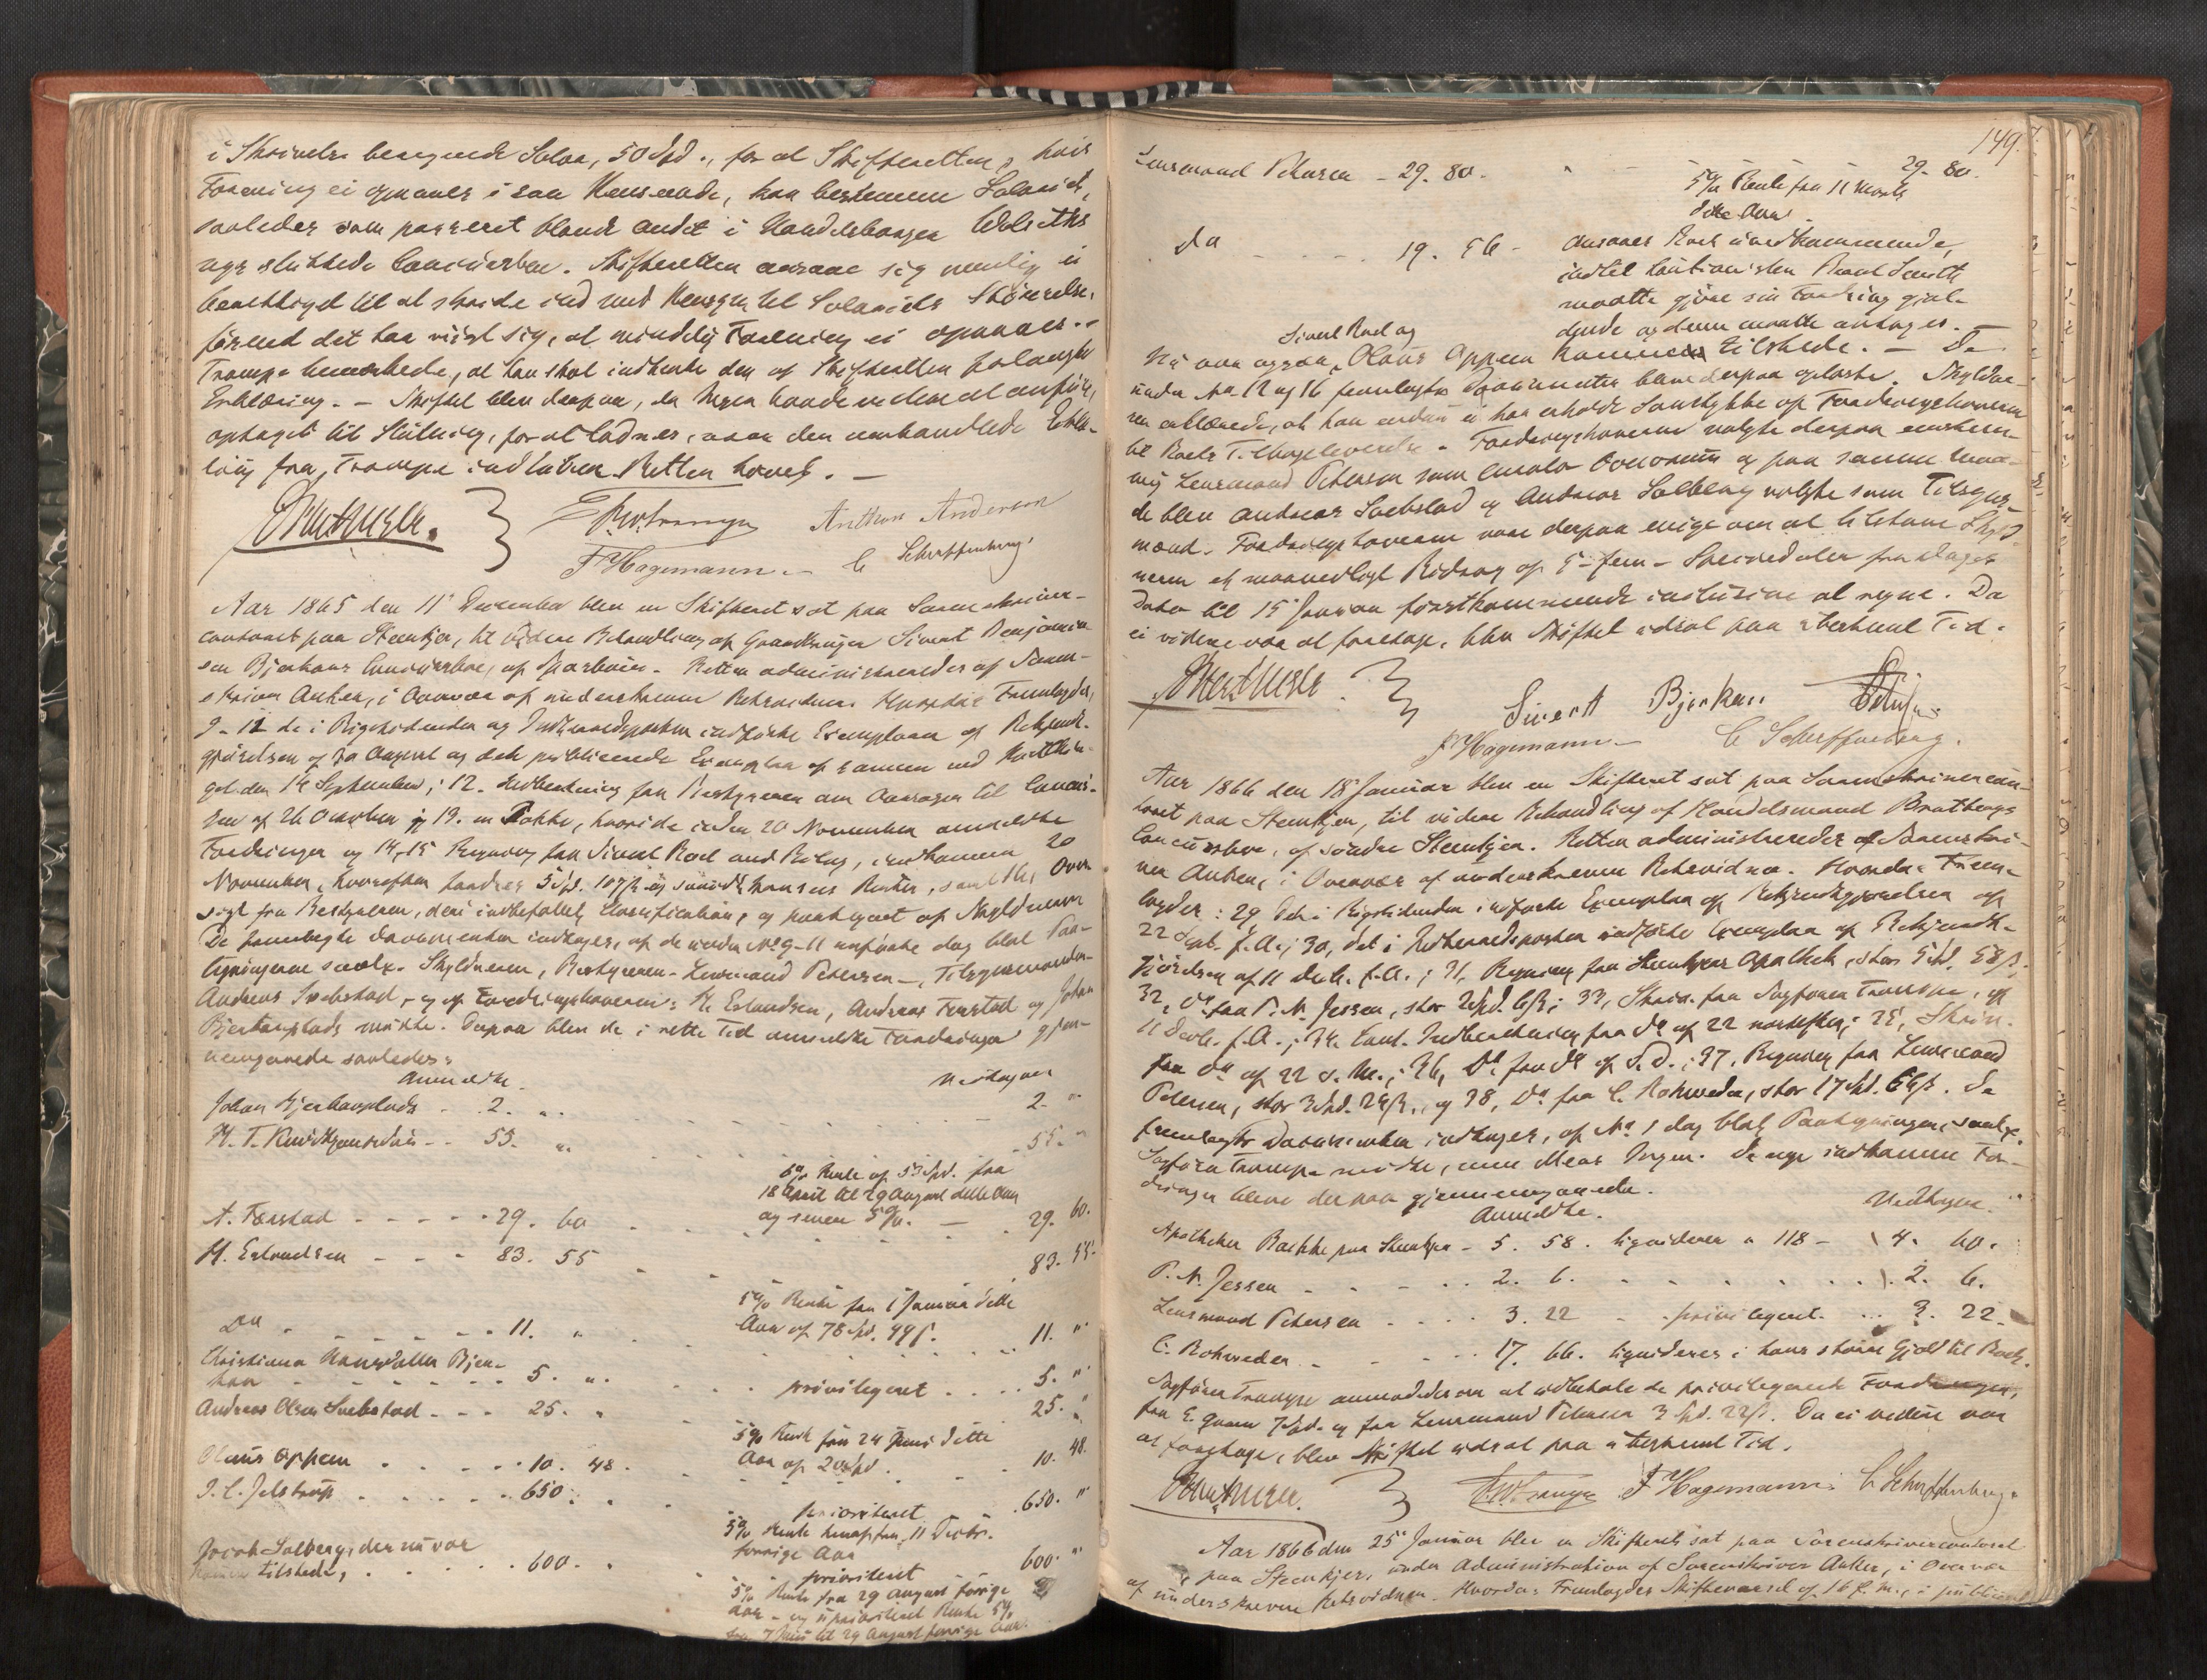 i Skrivelse beregnede Salær, 50 Spd., for at Skifteretten, hvis
Forening ei opnaaes i saa Henseende, kan bestemme Salairet,
saaledes som passeret blandt andet i
nys sluttede Concursboe. Skifteretten ansaae sig nemlig ei
berettiget til at skride ind med Hensyn til Salairets Størrelse,
førend det har viist sig, at mindelig Forening ei opnaaes. -
Trampe bemærkede, at han skal indhente den af Skifteretten forlangte
Erklæring. - Skiftet blev derpaa, da Ingen havde videre at anføre,
optaget til Slutning, for at sluttes, naar den omhandlede Erklæ-
ring fra Trampe indløber. Retten hævet. -
Anthon Anderson
F Hagemann. - C Scheffenberg.
Aar 1865 den 11 December blev en Skifteret sat paa Sorenskriver-
contoret paa Steenkjer, til videre Behandling af Gaardbruger Sivert Benjamin-
sen Bjerkans Concursboe, af Sparboen. Retten administreredes af Soren-
skriver Anker, i Overvær af underskrevne Retsvidner. Hvorda: Fremlagdes,
9-12 de i Rigstidenden og Indherredsposten indførte Exemplarer af Bekjendt-
gjørelsen af August og det publicerede Exemplar af samme ved Høstthin-
get den 14 September; 12. Indberetning fra Bestyreren om Aarsagen til Concur-
sen af 26 October og 13. en Pakke, hvori de inden 20 November anmeldte
Fordringer og 14, 15 Regning fra Sivert Roel med Bilag, indkommen 20
November, hvorefter fordres 5 Spd. 107 ß og Renter, samt 16, Over-
sigt fra Bestyreren, deri indbefattet Classification, og paategnet af Skyldneren
De fremlagte Documenter indtages, af de under No 9-11 anførte dog blot Paa-
tegningerne saalydende. Skyldneren, Bestyreren - Lensmand Petersen -, Tilsynsmanden -
Andreas Svebstad, - og af Fordringshaverne: H. Erlandsen, Andreas Færstad og Johan
Bjerkanplads mødte. Derpaa blev de i rette Tid anmeldte Fordringer gjen-
nemgaaede saaledes:
Anmeldte. Vedtagne
Johan Bjerkanplads - . 2. " . 2. "
55. " 55. "
6 % Rente af 53 Spd. fra
18 April til 29 August dette Aar
og senere 5 %.
A. Færstad - - - - - 29. 60 29. 60.
H. Erlandsen - - - 83. 55 83. 55.
5 % Rente fra 1 Januar dette
Aar af 78 Spd.
Do - - - - - - 11. " 11. "
Christiana Hansdatter Bjer-
kan - - - - 5. " privilegeret . . . . 5. "
Andreas Olsen Svebstad - - - 25. " 25. "
5 % Rente fra 24 Juni dette
Aar af 20 Spd.
Olaus Oppem . . . . . 10. 48. 10. 48.
J. C. Jelstrup . . . . . 650. " prioriteret 650. "
5 % Rente fra 11 Decbr.
forrige Aar
Jacob Salberg, der nu var
kommen tilstede, . . . . . 600. " prioriteret 600. "
5 % Rente fra 29 August forrige
Aar - og uprioriteret Rente 5 %
fra 7 Juni til 29 August forrige Aar.
149.
Lensmand Petersen - 29. 80. 29. 80.
5 % Rente fra 11 Marts
dette Aar.
Do - - - - . 19. 56 - ansaaes Boet uvedkommende,
indtil Cautionisten
maatte gjøre sin Fordring gjæl-
dende og denne maatte antages. -
Sivert Roel og
Nu var ogsaa Olaus Oppem kommen tilstede. - De
under No 12 og 16 fremlagte Documenter bleve derpaa oplæste. Skyldne-
ren erklærede, at han endnu ei har erholdt Samtykke af Fordringshaverne
til Boets Tilbageleverelse. Fordringshaverne valgte derpaa eenstem-
mig Lensmand Petersen som Curator bonorum og paa samme Maa-
de blev Andreas Svebstad og Andreas Salberg valgte som Tilsyns-
mænd. Fordringshaverne vare derpaa enige om at tilstaae Skyld-
neren et maanedligt Bidrag af 5 - fem - Speciedaler fra Dagens
Dato til 15 Januar førstkommende inclusive at regne. Da
ei videre var at foretage, blev Skiftet udsat paa ubestemt Tid.
Sivert Bjerkan
F Hagemann - C Scheffenberg.
Aar 1866 den 18 Januar blev en Skifteret sat paa Sorenskrivercon-
toret paa Steenkjer, til videre Behandling af Handelsmand Bratbergs
Concursboe, af søndre Steenkjer. Retten administreredes af Sorenskri-
ver Anker, i Overvær af underskrevne Retsvidner. Hvorda: Frem-
lagdes: 29 Det i Rigstidenden indførte Exemplar af Bekjendtgjørelsen af
22 Septb. f. A.; 30, det i Indherredsposten indførte Exemplar af Bekjendt-
gjørelsen af 11 Decb. f. A.; 31, Regning fra Steenkjær Apothek, stor 5 Spd. 58 ß;
32, Do fra P. N. Jessen, stor 2 Spd. 6 ß; 33, Skriv. fra Sagfører Trampe, af
11 Decb. f. A.; 34. Indberetning fra Do af 22 ; 35, Skriv.
fra Do af 22 s. M.; 36, Do fra Do af S. D.; 37, Regning fra Lensmand
Petersen, stor 3 Spd. 22 ß., og 38, Do fra C. Rohweder, stor 17 Spd. 66 ß. De
fremlagte Documenter indtages, af No 1 dog blot Paategningen, saalyd.
Sagfører Trampe mødte, men ellers Ingen. De nye indkomne For-
dringer bleve derpaa gjennemgaaede.
Anmeldte. Vedtagne.
Apotheker Backke paa Steenkjer - 5. 58. liquiderer a 118 - 4. 60.
P. N. Jessen - - - - . . 2. 6. . . . . . . . . 2. 6.
Lensmand Petersen - . . . . 3. 22 - . privilegeret. . . . 3. 22.
C. Rohweder - . . - . . . 17. 66. liquideres i hans større Gjæld til Boet.
Sagfører Trampe anmodedes om at udbetale de privilegerede Fordringer,
fra E. Qvam 7 Spd. og fra Lensmand Petersen 3 Spd. 22 ß. Da ei videre var
at foretage, blev Skiftet udsat paa ubestemt Tid.
F Hagemann. C Scheffenberg.
Aar 1866 den 25 Januar blev en Skifteret sat paa Sorenskrivercontoret
paa Steenkjer, under Administration af Sorenskriver Anker, i Overvær
af underskrevne Retsvidner. Hvorda: Fremlagdes Skiftevarsel af 16 f. M., i publiceret